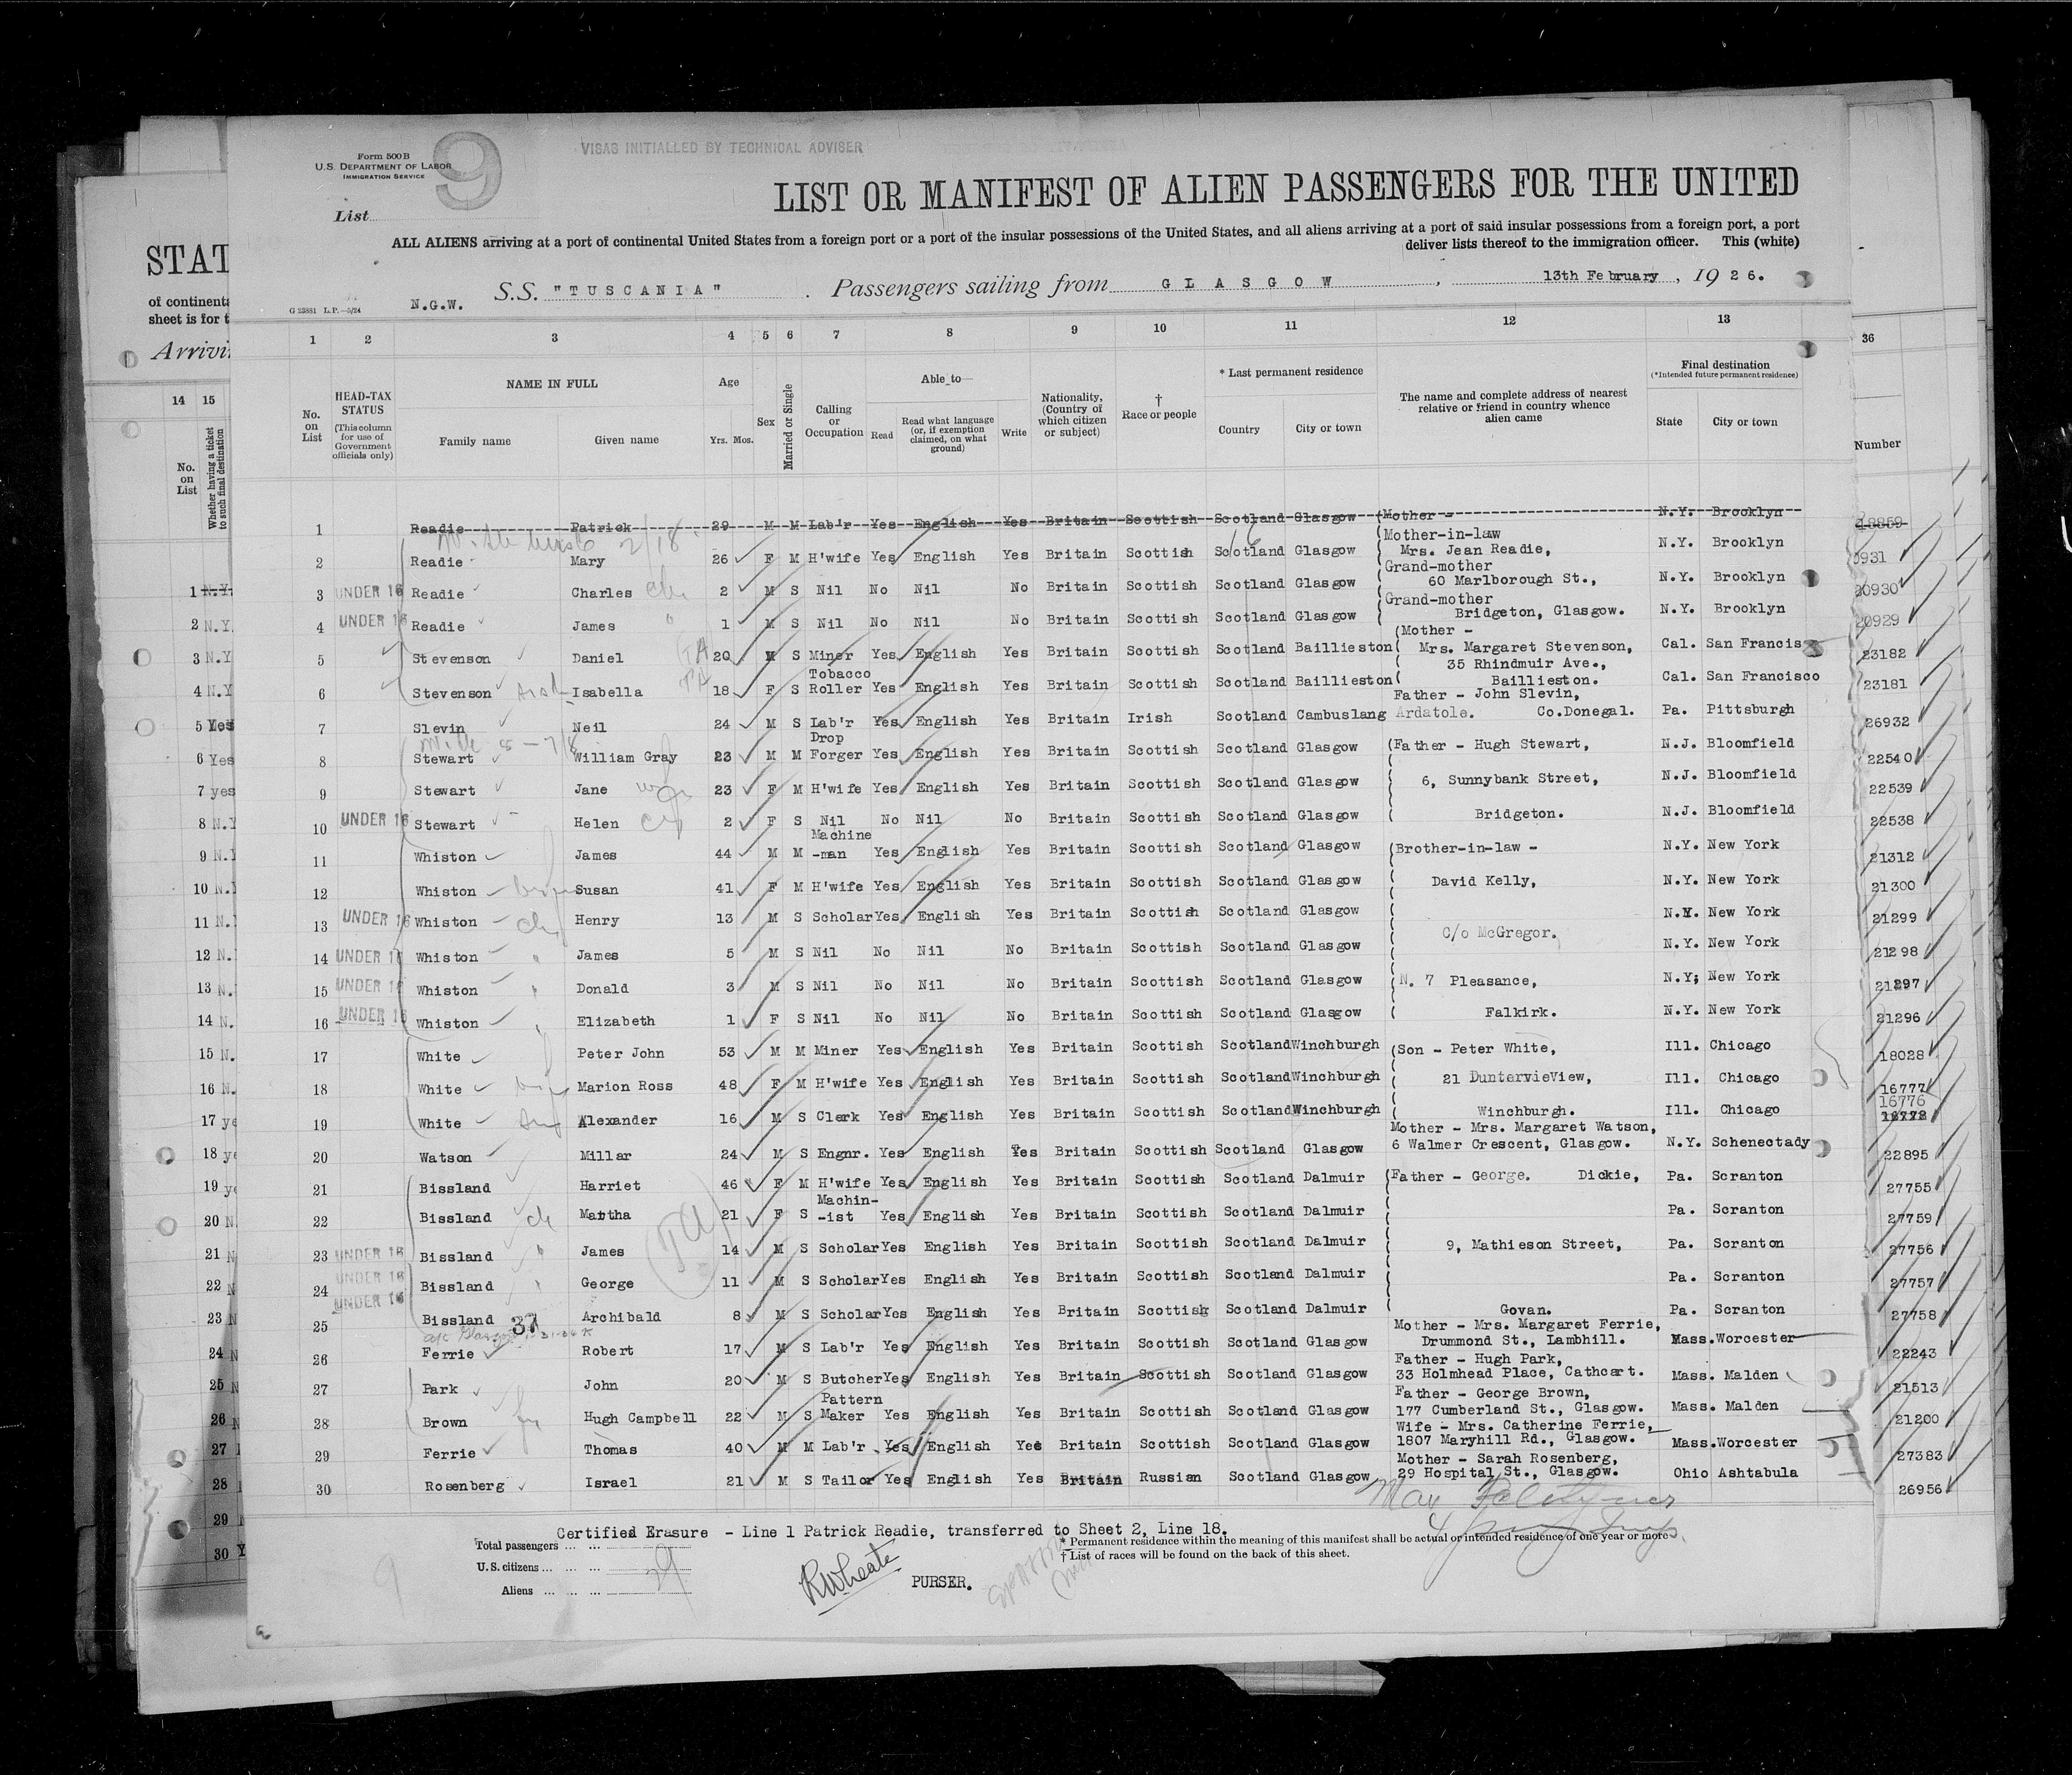 Form 500 B
U.S. DEPARTMENT OF LABOR
IMMIGRATION SERVICE
9
VISAS INITIALLED BY TECHNICAL ADVISER
List
LIST OR MANIFEST OF ALIEN PASSENGERS FOR THE UNITED
ALL ALIENS arriving at a port of continental United States from a foreign port or a port of the insular possessions of the United States, and all aliens arriving at a port of said insular possessions from a foreign port, a port
deliver lists thereof to the immigration officer. This (white)
G 23881 L.P.—5/24 N.G.W. S.S. "TUSCANIA" . Passengers sailing from GLASGOW , 13th February , 1926.
1 2 3 4 5 6 7 8 9 10 11 12 13 36
No. on List
HEAD-TAX STATUS (This column for use of Government officials only)
NAME IN FULL
Family name Given name
Age Yrs. Mos.
Sex
Married or Single
Calling or Occupation
Able to—
Read Read what language (or, if exemption claimed, on what ground) Write
Nationality, (Country of which citizen or subject)
† Race or people
* Last permanent residence
Country City or town
The name and complete address of nearest relative or friend in country whence alien came
Final destination (*Intended future permanent residence)
State City or town
Number
1 Readie Patrick 29 M M Lab'r Yes English Yes Britain Scottish Scotland Glasgow (Mother - N.Y. Brooklyn 18869
2 Readie Mary 26 F M H'wife Yes English Yes Britain Scottish Scotland Glasgow Mother-in-law Mrs. Jean Readie, N.Y. Brooklyn
3 UNDER 16 Readie Charles 2 M S Nil No Nil No Britain Scottish Scotland Glasgow Grand-mother 60 Marlborough St., N.Y. Brooklyn 20930
4 UNDER 16 Readie James 1 M S Nil No Nil No Britain Scottish Scotland Glasgow Grand-mother Bridgeton, Glasgow. N.Y. Brooklyn 20929
5 Stevenson Daniel 20 M S Miner Yes English Yes Britain Scottish Scotland Baillieston (Mother - Mrs. Margaret Stevenson, Cal. San Francis 23182
6 Stevenson Isabella 18 F S Tobacco Roller Yes English Yes Britain Scottish Scotland Baillieston 35 Rhindmuir Ave., Baillieston. Cal. San Francisco 23181
7 Slevin Neil 24 M S Lab'r Yes English Yes Britain Irish Scotland Cambuslang Father - John Slevin, Ardatole. Co.Donegal. Pa. Pittsburgh 26932
8 Stewart William Gray 23 M M Drop Forger Yes English Yes Britain Scottish Scotland Glasgow (Father - Hugh Stewart, N.J. Bloomfield 22540
9 Stewart Jane 23 F M H'wife Yes English Yes Britain Scottish Scotland Glasgow 6, Sunnybank Street, N.J. Bloomfield 22539
10 UNDER 16 Stewart Helen 2 F S Nil No Nil No Britain Scottish Scotland Glasgow Bridgeton. N.J. Bloomfield 22538
11 Whiston James 44 M M Machine -man Yes English Yes Britain Scottish Scotland Glasgow (Brother-in-law - N.Y. New York 21312
12 Whiston Susan 41 F M H'wife Yes English Yes Britain Scottish Scotland Glasgow David Kelly, N.Y. New York 21300
13 UNDER 16 Whiston Henry 13 M S Scholar Yes English Yes Britain Scottish Scotland Glasgow C/o McGregor. N.Y. New York 21299
14 UNDER 16 Whiston James 5 M S Nil No Nil No Britain Scottish Scotland Glasgow N.Y. New York 21298
15 UNDER 16 Whiston Donald 3 M S Nil No Nil No Britain Scottish Scotland Glasgow N. 7 Pleasance, N.Y; New York 21297
16 UNDER 16 Whiston Elizabeth 1 F S Nil No Nil No Britain Scottish Scotland Glasgow Falkirk. N.Y. New York 21296
17 White Peter John 53 M M Miner Yes English Yes Britain Scottish Scotland Winchburgh (Son - Peter White, Ill. Chicago 18028
18 White Marion Ross 48 F M H'wife Yes English Yes Britain Scottish Scotland Winchburgh 21 DuntarvieView, Ill. Chicago 16777
19 White Alexander 16 M S Clerk Yes English Yes Britain Scottish Scotland Winchburgh Winchburgh. Ill. Chicago 16776
20 Watson Millar 24 M S Engnr. Yes English Yes Britain Scottish Scotland Glasgow Mother - Mrs. Margaret Watson, 6 Walmer Crescent, Glasgow. N.Y. Schenectady 22895
21 Bissland Harriet 46 F M H'wife Yes English Yes Britain Scottish Scotland Dalmuir (Father - George. Dickie, Pa. Scranton 27755
22 Bissland Martha 21 F S Machin- -ist Yes English Yes Britain Scottish Scotland Dalmuir Pa. Scranton 27759
23 UNDER 16 Bissland James 14 M S Scholar Yes English Yes Britain Scottish Scotland Dalmuir 9, Mathieson Street, Pa. Scranton 27756
24 UNDER 16 Bissland George 11 M S Scholar Yes English Yes Britain Scottish Scotland Dalmuir Pa. Scranton 27757
25 UNDER 16 Bissland 37 Archibald 8 M S Scholar Yes English Yes Britain Scottish Scotland Dalmuir Govan. Pa. Scranton 27758
26 Ferrie Robert 17 M S Lab'r Yes English Yes Britain Scottish Scotland Glasgow Mother - Mrs. Margaret Ferrie, Drummond St., Lambhill. Mass. Worcester 22243
27 Park John 20 M S Butcher Yes English Yes Britain Scottish Scotland Glasgow Father - Hugh Park, 33 Holmhead Place, Cathcart. Mass. Malden 21513
28 Brown Hugh Campbell 22 M S Pattern Maker Yes English Yes Britain Scottish Scotland Glasgow Father - George Brown, 177 Cumberland St., Glasgow. Mass. Malden 21200
29 Ferrie Thomas 40 M M Lab'r Yes English Yes Britain Scottish Scotland Glasgow Wife - Mrs. Catherine Ferrie, 1807 Maryhill Rd., Glasgow. Mass. Worcester 27383
30 Rosenberg Israel 21 M S Tailor Yes English Yes Britain Russian Scotland Glasgow Mother - Sarah Rosenberg, 29 Hospital St., Glasgow. Ohio Ashtabula 26956
Certified Erasure - Line 1 Patrick Readie, transferred to Sheet 2, Line 18.
Total passengers
U.S. citizens
Aliens
29
RWheate
PURSER.
* Permanent residence within the meaning of this manifest shall be actual or intended residence of one year or more.
† List of races will be found on the back of this sheet.
STAT
of continent
sheet is for t
Arrivi
14 15
No. on List
Whether having a ticket to such final destination
1 N.Y.
2 N.Y.
3 N.Y
4 N.Y
5 Yes
6 Yes
7 yes
8 N.Y
9 N.Y
10 N.Y
11 N.
12 N.
13 N.
14 N.
15 N.
16 N.
17 ye
18 ye
19 ye
20 N
21 N
22 N
23 N
24 N
25 N
26 N
27
28
29
30 Y